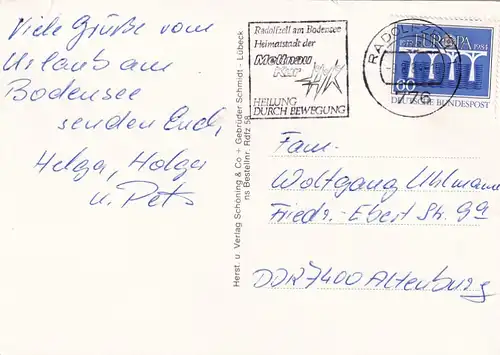 Viele Grüße vom
Urlaub am
Bodensee
senden Euch,
Helga, Holga
u. Peter
Herst. u. Verlag Schöning & Co + Gebrüder Schmidt - Lübeck
ns Bestellnr. Rdfz 58
Radolfzell am Bodensee
Heimatstadt der
Mettnau
Kur
HEILUNG
DURCH BEWEGUNG
RADOLFZ
EUROPA
1984
60
DEUTSCHE BUNDESPOST
Fam.
Wolfgang Uhlmann
Friedr.-Ebert Str. 99
DDR 7400 Altenburg